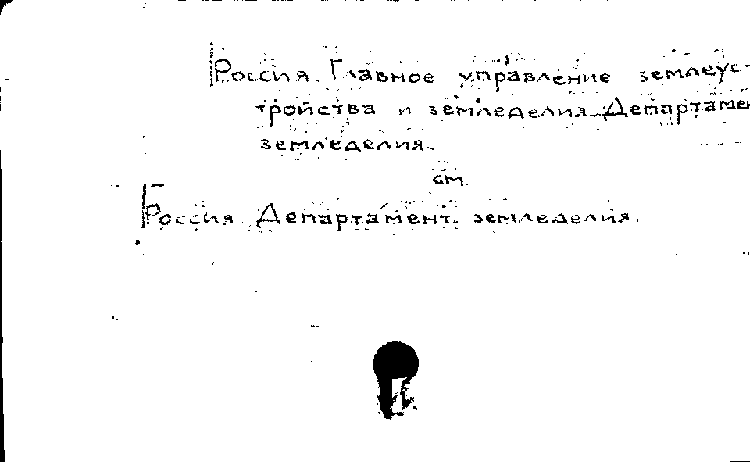 [Россия. Главное управление землеус-
тройства и земледелия. Департамен
земледелия.
см.
[Россия. Департамент земледелия.